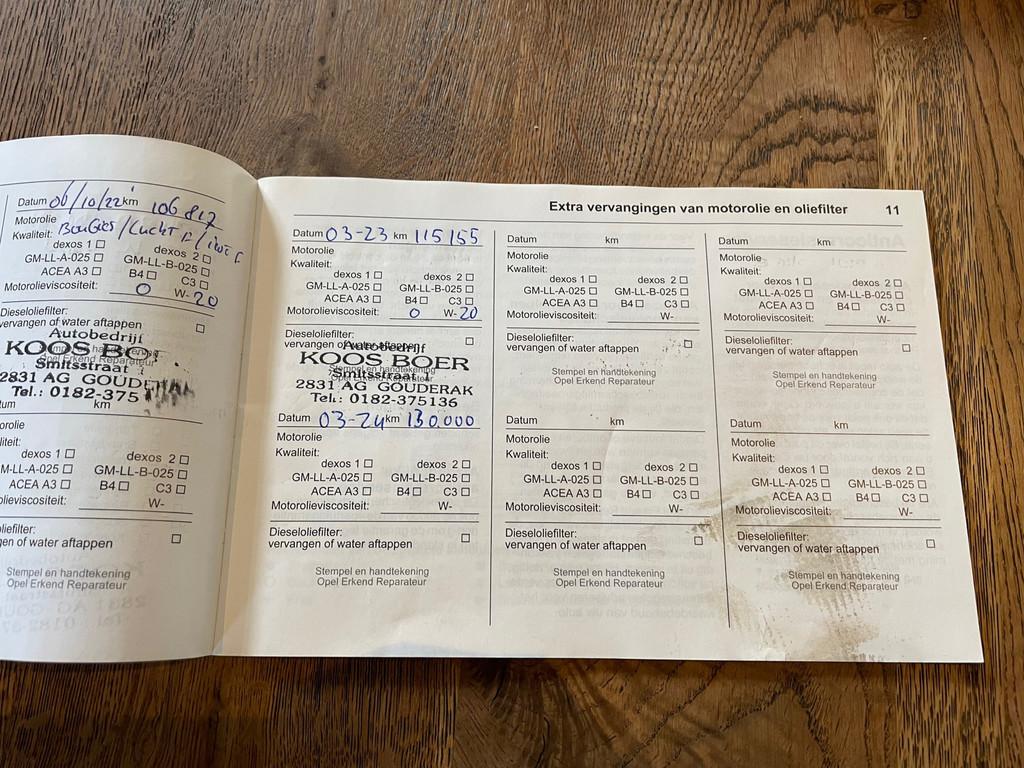 Datum 06/10/22 km 106 817
Motorolie
Kwaliteit: Bougies / Lucht
dexos 1 dexos 2
GM-LL-A-025 GM-LL-B-025
ACEA A3 B4 C3
Motorolieviscositeit: 0 W-20
Dieseloliefilter:
vervangen of water aftappen
Stempel en handtekening
Opel Erkend Reparateur
Autobedrijf
KOOS BOER
Smitsstraat 1
2831 AG GOUDERAK
Tel.: 0182-375
tum km
orolie
liteit:
dexos 1 dexos 2
M-LL-A-025 GM-LL-B-025
ACEA A3 B4 C3
olieviscositeit: W-
oliefilter:
gen of water aftappen
Stempel en handtekening
Opel Erkend Reparateur
Extra vervangingen van motorolie en oliefilter 11
Datum 03-23 km 115155
Motorolie
Kwaliteit:
dexos 1 dexos 2
GM-LL-A-025 GM-LL-B-025
ACEA A3 B4 C3
Motorolieviscositeit: 0 W-20
Dieseloliefilter:
vervangen of water aftappen
Stempel en handtekening
Opel Erkend Reparateur
Autobedrijf
KOOS BOER
Smitsstraat 1
2831 AG GOUDERAK
Tel.: 0182-375136
Datum 03-24 km 130.000
Motorolie
Kwaliteit:
dexos 1 dexos 2
GM-LL-A-025 GM-LL-B-025
ACEA A3 B4 C3
Motorolieviscositeit: W-
Dieseloliefilter:
vervangen of water aftappen
Stempel en handtekening
Opel Erkend Reparateur
Datum km
Motorolie
Kwaliteit:
dexos 1 dexos 2
GM-LL-A-025 GM-LL-B-025
ACEA A3 B4 C3
Motorolieviscositeit: W-
Dieseloliefilter:
vervangen of water aftappen
Stempel en handtekening
Opel Erkend Reparateur
Datum km
Motorolie
Kwaliteit:
dexos 1 dexos 2
GM-LL-A-025 GM-LL-B-025
ACEA A3 B4 C3
Motorolieviscositeit: W-
Dieseloliefilter:
vervangen of water aftappen
Stempel en handtekening
Opel Erkend Reparateur
Datum km
Motorolie
Kwaliteit:
dexos 1 dexos 2
GM-LL-A-025 GM-LL-B-025
ACEA A3 B4 C3
Motorolieviscositeit: W-
Dieseloliefilter:
vervangen of water aftappen
Stempel en handtekening
Opel Erkend Reparateur
Datum km
Motorolie
Kwaliteit:
dexos 1 dexos 2
GM-LL-A-025 GM-LL-B-025
ACEA A3 B4 C3
Motorolieviscositeit: W-
Dieseloliefilter:
vervangen of water aftappen
Stempel en handtekening
Opel Erkend Reparateur